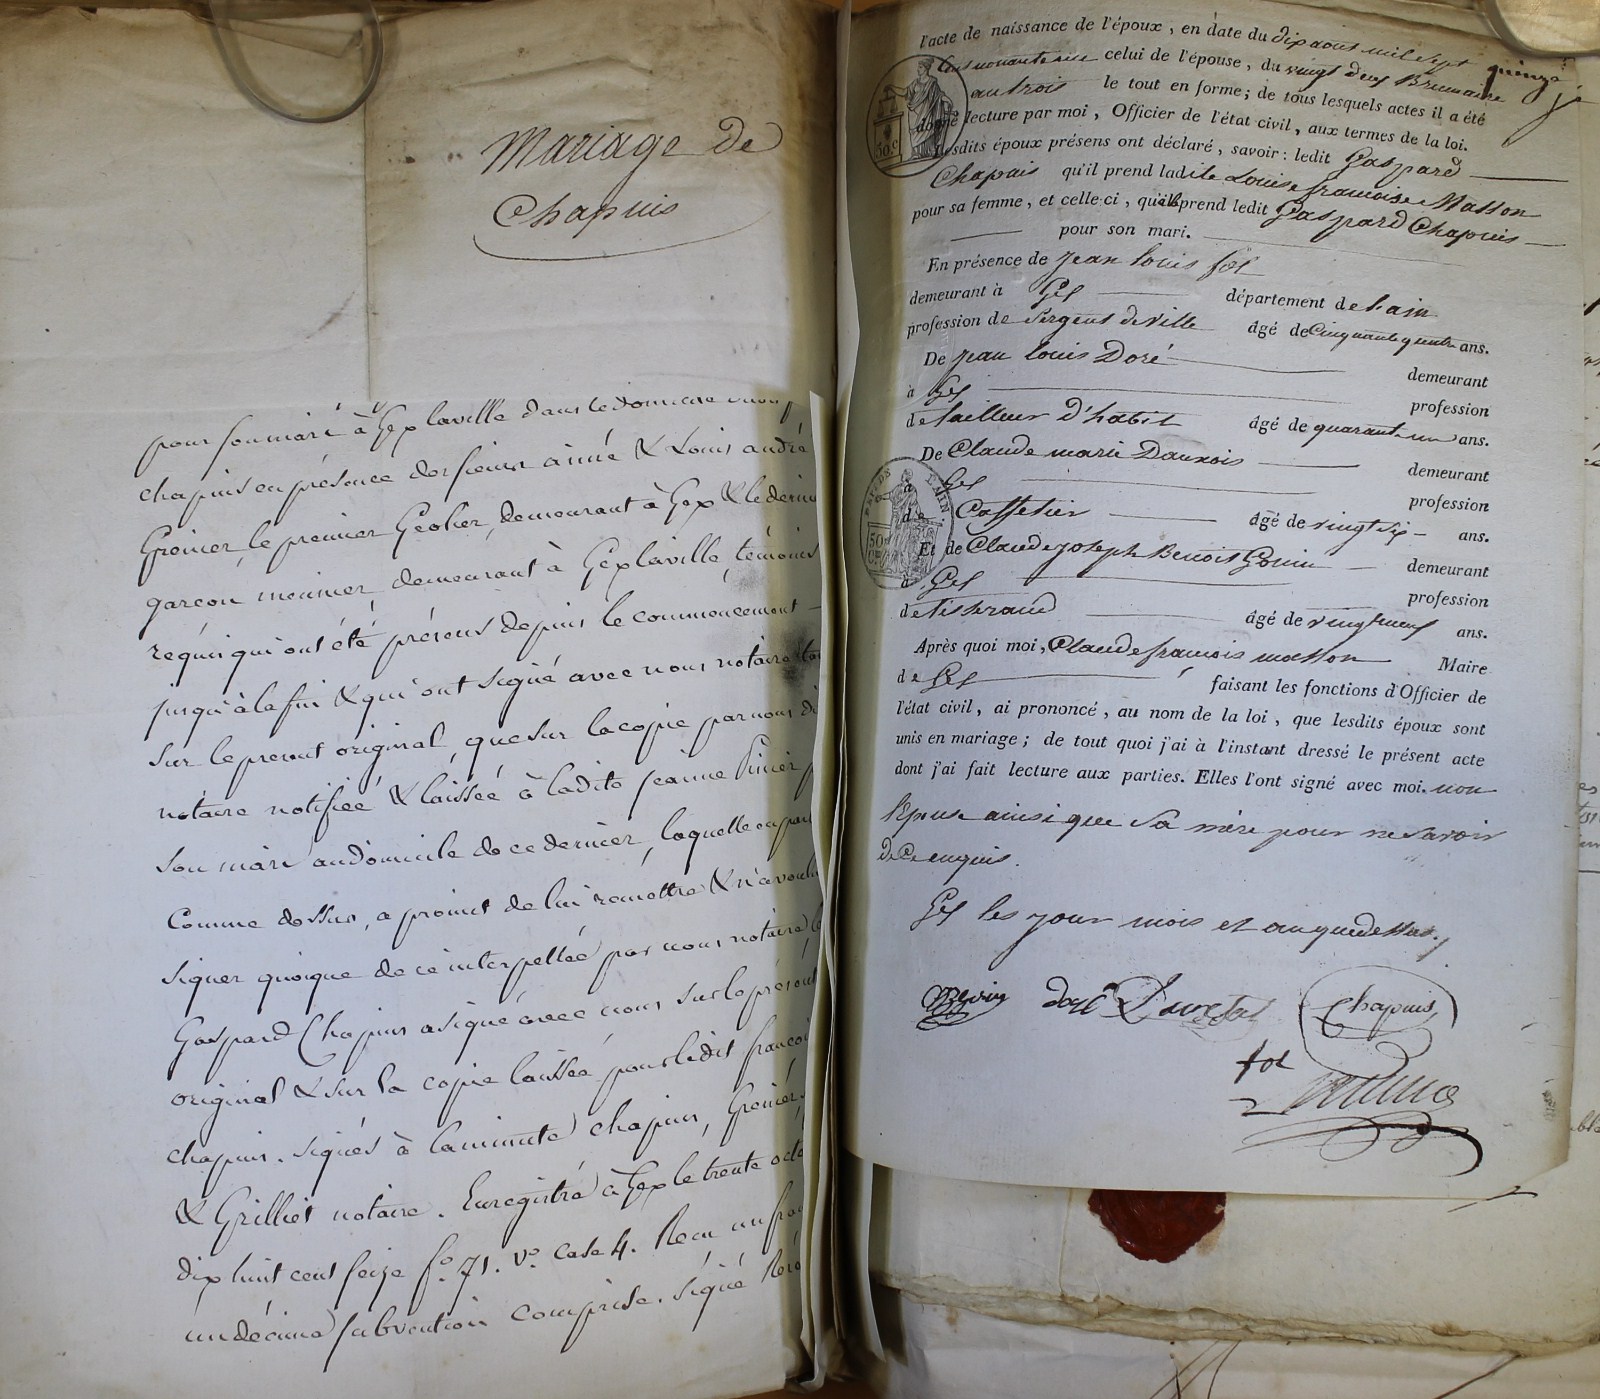 Mariage de
Chapuis
pour son mari à Gex la ville dans le domicile
chapuis en présence des sieurs aimé & Louis andré
Greiner, le premier Geolier, demeurant à Gex & le dernier
garçon meunier, demeurant à Gex la ville, témoins
réquis qui ont été présens depuis le commencement
jusqu'à la fin & qui ont signé avec nous notaire tant
sur le present original, que sur la copie par nous dit
notaire notifiée & laissée à ladite jeanne
son mari au domicile de ce dernier, laquelle en
Comme dessus, a promit de lui remettre & n'a voulu
signer quoique de ce interpellée par nous notaire
Gaspard Chapuis a signé avec nous sur le présent
original & sur la copie laissée pour ledit francois
chapuis. signés à la minute chapuis, Greiner
& Grilliet notaire. Enregistré à Gex le trente
dix huit cent seize f.º 71. v.º Case 4. Recu un franc
un décime subvention comprise. signé
l'acte de naissance de l'époux, en date du dix aout mil sept quinze
cent nonante celui de l'épouse, du vingt deux Brumaire
an trois le tout en forme; de tous lesquels actes il a été
donné lecture par moi, Officier de l'état civil, aux termes de la loi.
Lesdits époux présens ont déclaré, savoir: ledit Gaspard
Chapuis qu'il prend ladite Louise francoise Masson
pour sa femme, et celle-ci, qu'elle prend ledit Gaspard Chapuis
pour son mari.
En présence de jean louis fol
demeurant à Gex département de l'ain
profession de sergent de ville âgé de cinquante quatre ans.
De jean louis Doré demeurant
à Gex profession
de tailleur d'habit âgé de quarante un ans.
De Claude marie Daunois demeurant
à Gex profession
de Caffetier âgé de vingt six ans.
Et de Claude joseph Benoit Gouin demeurant
à Gex profession
de tisserand âgé de vingt neuf ans.
Après quoi moi, Claude francois masson Maire
de Gex faisant les fonctions d'Officier de
l'état civil, ai prononcé, au nom de la loi, que lesdits époux sont
unis en mariage; de tout quoi j'ai à l'instant dressé le présent acte
dont j'ai fait lecture aux parties. Elles l'ont signé avec moi. non
l'epouse ainsi que sa mère pour ne savoir
de ce enquis.
Gex les jour mois et an que dessus.
Chapuis
fol